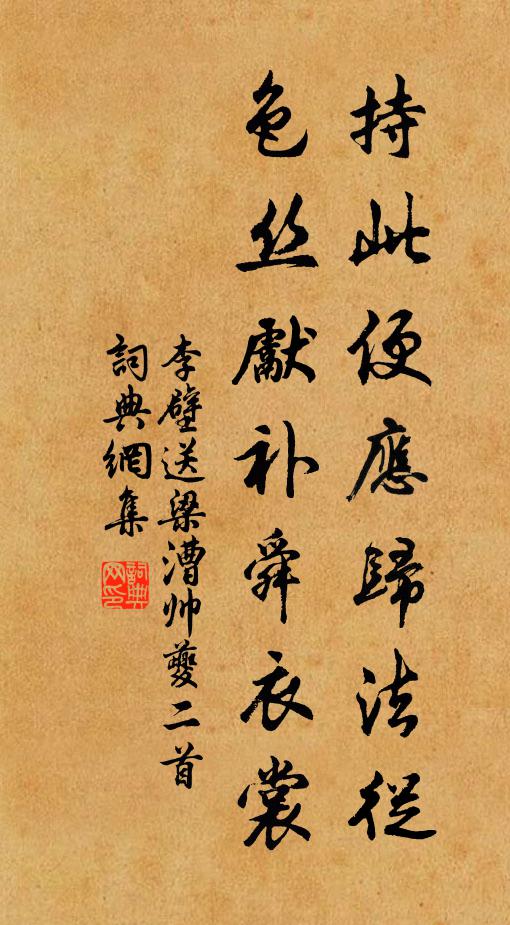 持此便應歸法從
色丝獻补舜衣裳
李壁送梁漕帅夔二首
詞典網集
詞典网印